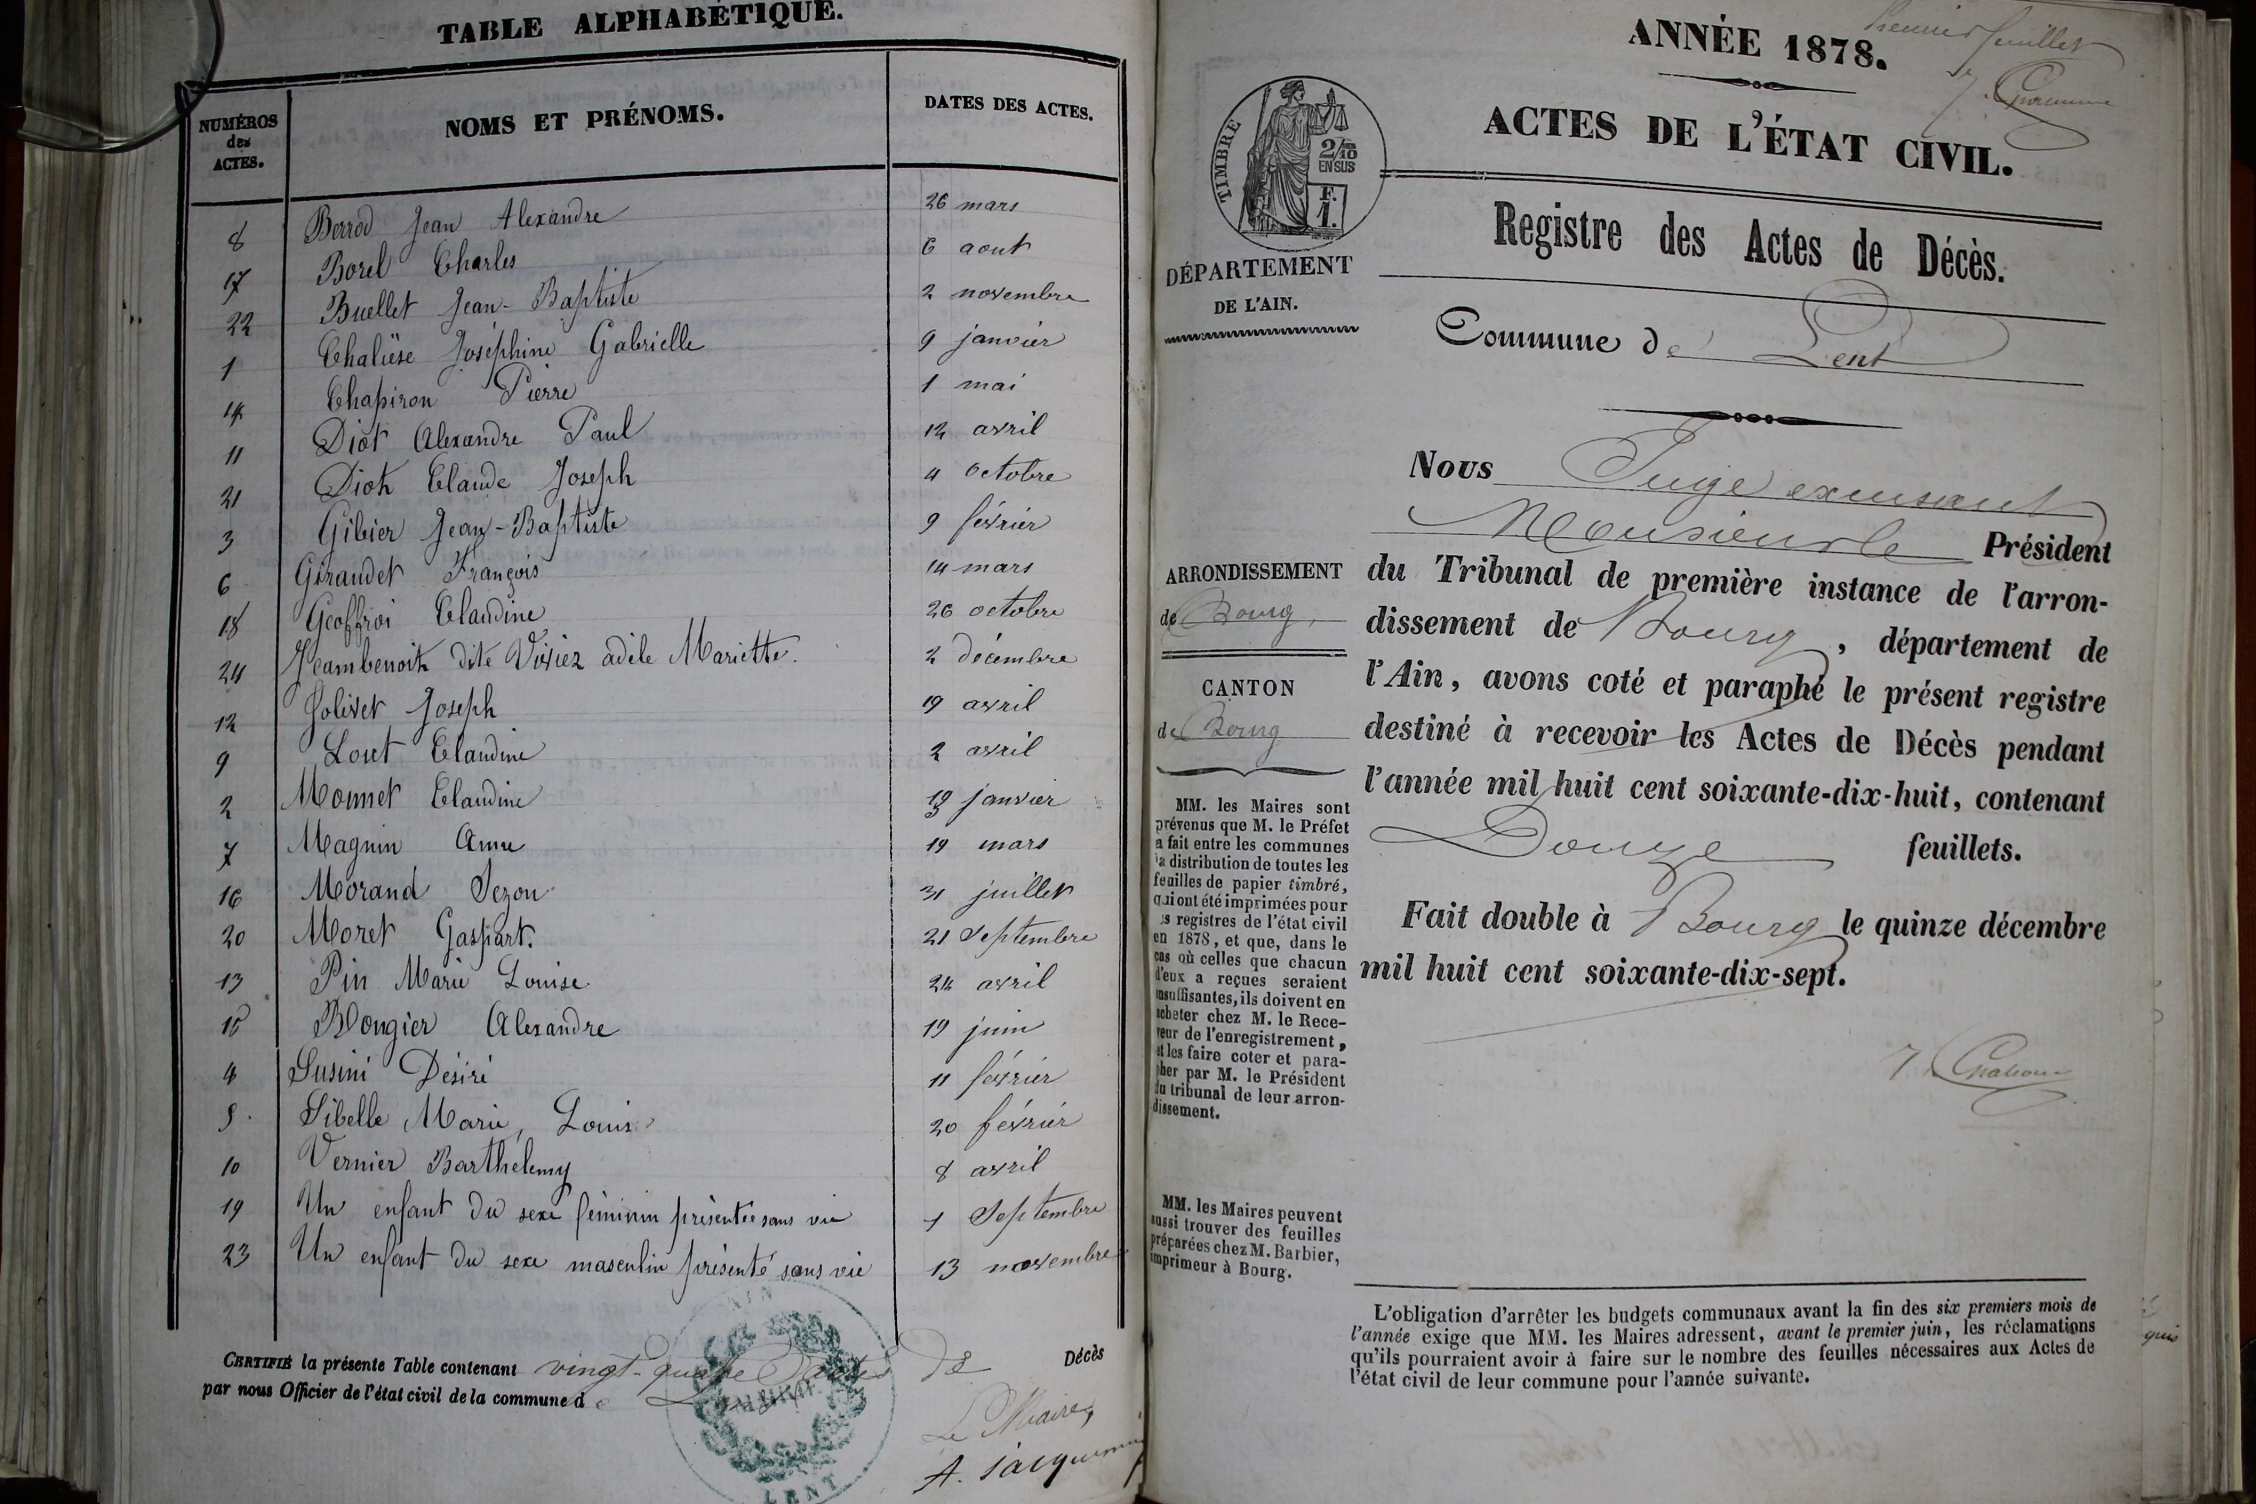 TABLE ALPHABÉTIQUE.
NUMÉROS des ACTES.
NOMS ET PRÉNOMS.
DATES DES ACTES.
8 Borrod Jean Alexandre 26 mars
17 Borel Charles 6 aout
22 Buellet Jean-Baptiste 2 novembre
1 Chalüse Joséphine Gabrielle 9 janvier
14 Chapiron Pierre 1 mai
11 Diot Alexandre Paul 12 avril
21 Diot Claude Joseph 4 octobre
3 Gibier Jean-Baptiste 9 février
6 Giraudet François 14 mars
18 Geoffroi Claudine 26 octobre
24 Jeambenoit dite Vivier adèle Mariette. 2 décembre
12 Jolivet Joseph 19 avril
9 Loret Claudine 2 avril
2 Monnet Claudine janvier
7 Magnin Anne 19 mars
16 Morand Sezon 31 juillet
20 Moret Gaspart. 21 Septembre
13 Pin Marie Louise 24 avril
15 Rougier Alexandre 19 juin
4 Susini Désiré 11 février
5 Sibelle Marie, Louis 20 février
10 Vernier Barthelemy 8 avril
19 Un enfant du sexe féminin présentée sans vie 1 Septembre
23 Un enfant du sexe masculin présenté sans vie 13 novembre
CERTIFIÉ la présente Table contenant vingt-quatre actes de Décès
par nous Officier de l'état civil de la commune de
Le Maire,
A. Jacquemin
AIN
LENT
premier feuillet
ANNÉE 1878.
ACTES DE L'ÉTAT CIVIL.
TIMBRE
2/10
EN SUS
F.
1.
Registre des Actes de Décès.
DÉPARTEMENT
DE L'AIN.
Commune de Lent
Nous Juge excusant
Monsieur le Président
du Tribunal de première instance de l'arron-
dissement de Bourg, département de
l'Ain, avons coté et paraphé le présent registre
destiné à recevoir les Actes de Décès pendant
l'année mil huit cent soixante-dix-huit, contenant
Douze feuillets.
Fait double à Bourg le quinze décembre
mil huit cent soixante-dix-sept.
ARRONDISSEMENT
de Bourg,
CANTON
de Bourg
MM. les Maires sont
prévenus que M. le Préfet
a fait entre les communes
la distribution de toutes les
feuilles de papier timbré,
qui ont été imprimées pour
es registres de l'état civil
en 1878, et que, dans le
cas où celles que chacun
d'eux a reçues seraient
insuffisantes, ils doivent en
acheter chez M. le Rece-
veur de l'enregistrement,
et les faire coter et para-
pher par M. le Président
du tribunal de leur arron-
dissement.
MM. les Maires peuvent
aussi trouver des feuilles
préparées chez M. Barbier,
imprimeur à Bourg.
L'obligation d'arrêter les budgets communaux avant la fin des six premiers mois de
l'année exige que MM. les Maires adressent, avant le premier juin, les réclamations
qu'ils pourraient avoir à faire sur le nombre des feuilles nécessaires aux Actes de
l'état civil de leur commune pour l'année suivante.